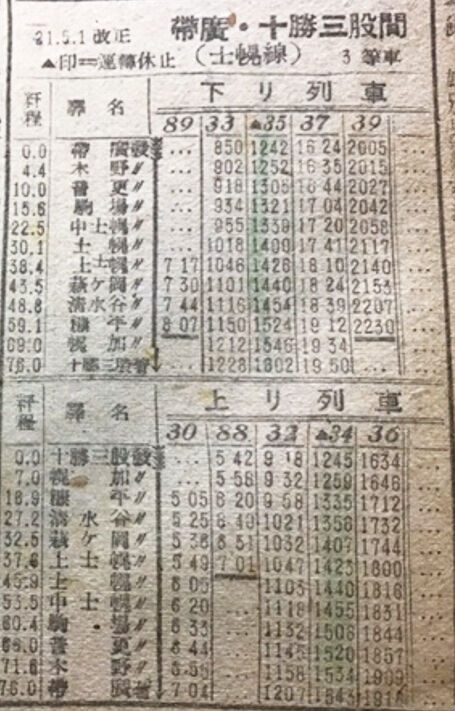 帶廣・十勝三股間
21.5.1 改正 (士幌線)
▲印=運轉休止 3 等車
粁程 驛名 下り列車
89 33 ▲35 37 39
0.0 帶廣發 ... 850 1242 16 24 2005
4.4 木野〃 ... 902 1252 16 35 2015
10.0 音更〃 ... 918 1305 16 44 2027
15.6 駒場〃 ... 934 1321 17 04 2042
22.5 中士幌〃 ... 955 1339 17 20 2058
30.1 士幌〃 ... 1018 1400 17 41 2117
38.4 上士幌〃 7 17 1046 1426 18 10 2140
43.5 萩ケ岡〃 7 30 1101 1440 18 24 2153
48.8 淸水谷〃 7 44 1116 1454 18 39 2207
59.1 糠平〃 8 07 1150 1524 19 12 2230
69.0 幌加〃 ... 1212 1546 19 34
76.0 十勝三股着 ... 1228 1602 19 50 ...
粁程 驛名 上り列車
30 88 32 ▲34 36
0.0 十勝三股發 ... 5 42 9 18 1245 1634
7.0 幌加〃 ... 5 58 9 32 1259 1646
16.9 糠平〃 5 05 6 20 9 58 1335 1712
27.2 淸水谷〃 5 25 6 40 1021 1356 1732
32.5 萩ケ岡〃 5 36 6 51 1032 1407 1744
37.6 上士幌〃 5 49 7 01 1047 1423 1800
45.9 士幌〃 6 05 1103 1440 1816
53.5 中士幌〃 6 20 ... 1118 1455 1831
60.4 駒場〃 6 33 ... 1132 1508 1844
66.0 音更〃 6 44 ... 1145 1520 1857
71.6 木野〃 6 56 ... 1158 1534 1909
76.0 帶廣着 7 04 ... 1207 1543